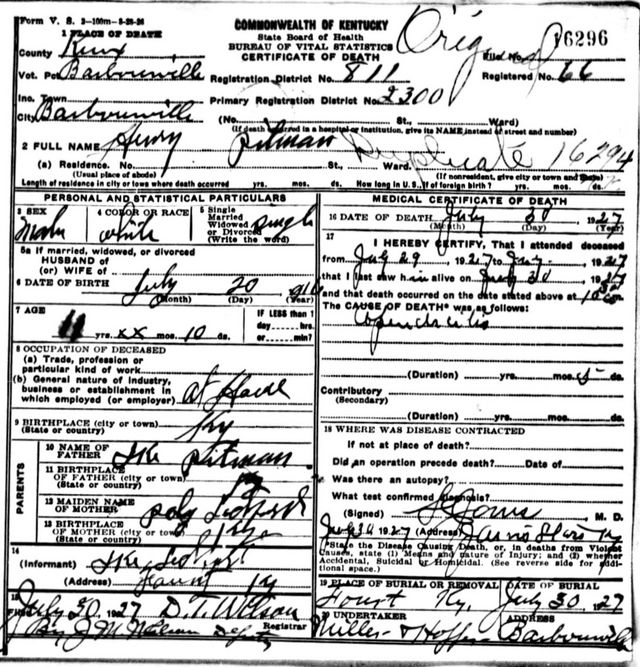 Form V. S. 2-100m-8-28-26
COMMONWEALTH OF KENTUCKY
State Board of Health
BUREAU OF VITAL STATISTICS
CERTIFICATE OF DEATH
Orig
File No. 16296
Registered No. 66
1 PLACE OF DEATH
County Knox
Vot. Pct Barbourville
Registration District No. 811
Inc. Town
Primary Registration District No. 2300
City Barbourville
(No. St., Ward)
(If death occurred in a hospital or institution, give its NAME instead of street and number)
2 FULL NAME Henry Pitman
Duplicate 16294
(a) Residence. No. St., Ward.
(Usual place of abode) (If nonresident, give city or town and State)
Length of residence in city or town where death occurred yrs. mos. ds. How long in U.S., if of foreign birth? yrs. mos. ds.
PERSONAL AND STATISTICAL PARTICULARS
3 SEX Male
4 COLOR OR RACE white
5 Single Married Widowed or Divorced (Write the word) single
5a If married, widowed, or divorced
HUSBAND of
(or) WIFE of
6 DATE OF BIRTH July 20 916
(Month) (Day) (Year)
7 AGE 11 yrs. xx mos. 10 ds.
IF LESS than 1 day hrs. or min.?
8 OCCUPATION OF DECEASED
(a) Trade, profession or particular kind of work
(b) General nature of industry, business or establishment in which employed (or employer) at Home
9 BIRTHPLACE (city or town) Ky
(State or country)
PARENTS
10 NAME OF FATHER Ike Pitman
11 BIRTHPLACE OF FATHER (city or town)
(State or country)
12 MAIDEN NAME OF MOTHER
13 BIRTHPLACE OF MOTHER (city or town)
(State or country)
14
(Informant) Ike
(Address) Ky
15
Filed July 30 1927 D. T. Wilson
Registrar
By J M Deputy
MEDICAL CERTIFICATE OF DEATH
16 DATE OF DEATH July 30 1927
(Month) (Day) (Year)
17
I HEREBY CERTIFY, That I attended deceased
from July 29 1927 to 1927
that I last saw him alive on July 30 1927
and that death occurred on the date stated above at 10
The CAUSE OF DEATH* was as follows:
(Duration) yrs. mos. 5 ds.
Contributory
(Secondary)
(Duration) yrs. mos. ds.
18 WHERE WAS DISEASE CONTRACTED
If not at place of death?
Did an operation precede death? Date of
Was there an autopsy?
What test confirmed diagnosis?
(Signed) M. D.
1927 (Address) Ky
*State the Disease Causing Death, or, in deaths from Violent Causes, state (1) Means and nature of Injury; and (2) whether Accidental, Suicidal or Homicidal. (See reverse side for additional space.)
19 PLACE OF BURIAL OR REMOVAL Ky.
DATE OF BURIAL July 30 1927
20 UNDERTAKER Miller
ADDRESS Barbourville